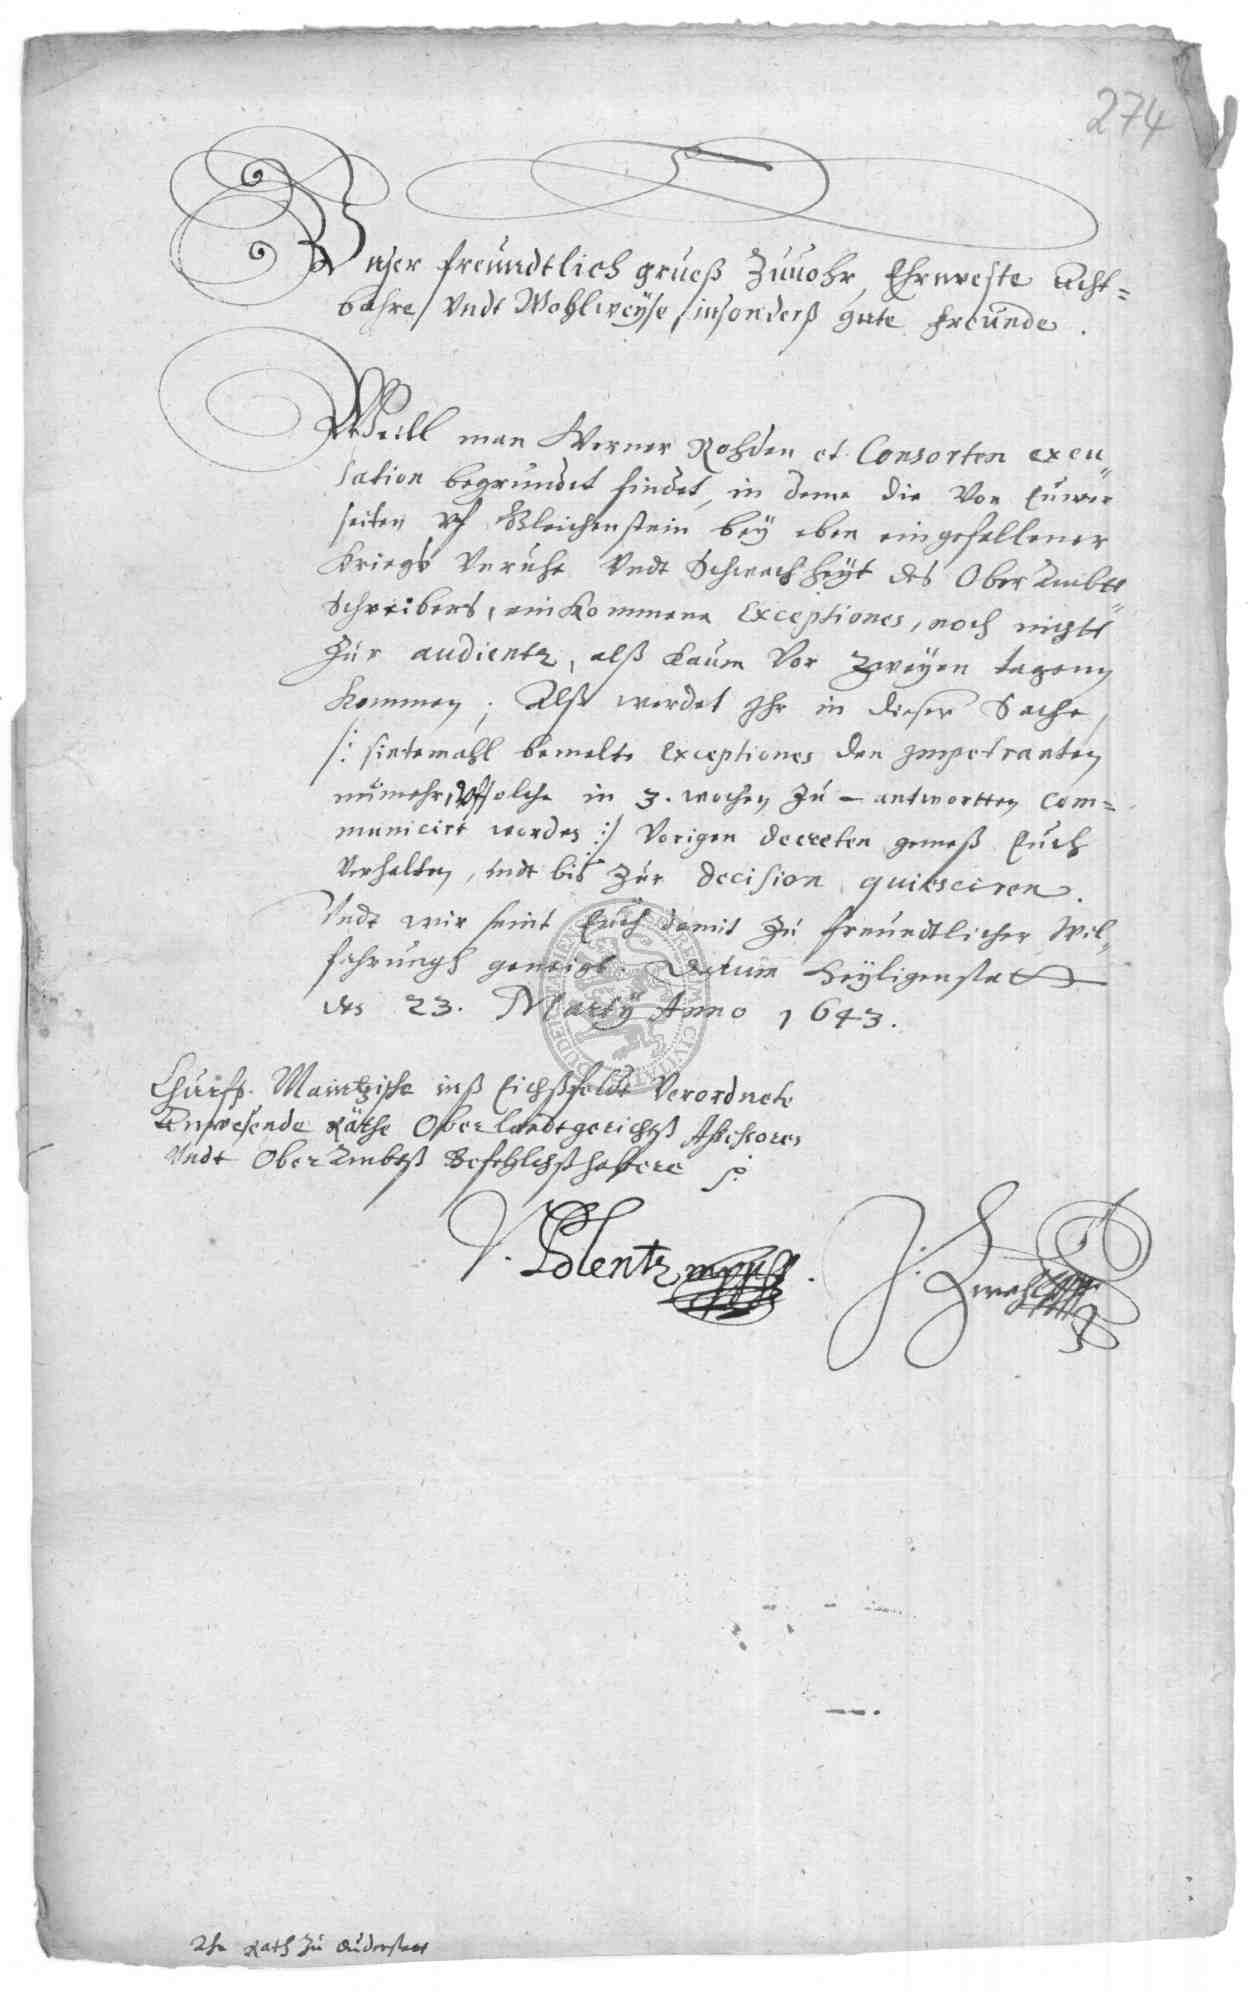 274
Vnser freundtlich grueß Zuuohr, Ehrnveste Acht=
bahre, Vndt Wohlweyse, insonderß gute Freunde.
Weill man Werner Rohden et Consorten excu
sation begrundet findet, in deme die Von Euwer
seiten vf Gleichenstein bey eben eingefallener
Kriegs Vnruhe Vndt Schwachheyt des Ober Ambts
Schreibers, einkommene Exceptiones, noch nichts
Zur audientz, alß kaum Vor zweyen tagen
kommen; Alß werdet Ihr in dieser Sache,
/: sintemahl bemelte Exceptiones den Impetranten
nunmehr, Vf solche in 3. wochen Zu antwortten com=
municirt worden :/ Vorigen decreten gemeß Euch
Verhalten, vndt biß Zur decision quiesciren.
Vndt wir seint Euch damit Zu freundtlicher Wil=
fahrungh geneigt. Datum Heyligenstatt
den 23. Martij Anno 1643.
Churfr. Maintzische inß Eichßfeldt Verordnete
Anwesende Räthe Oberlandtgerichtß Assessores
Vndt Ober Ambtß Befehlchßhabere
V. Plentz mppr.
J. Zwehl
Ahn Rath Zu Duderstatt